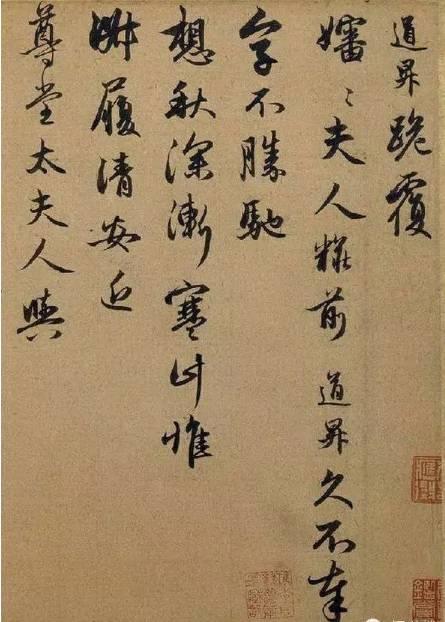 道昇跪覆
嬸〻夫人粧前道昇久不奉
字不勝馳
想秋深漸寒計惟
淑履清安近
尊堂太夫人與